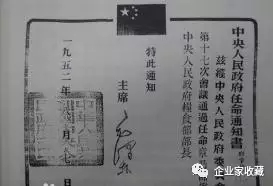 中央人民政府任命通知書
茲經中央人民政府委員會
第十七次會議通過任命章
中央人民政府糧食部部長
特此通知
主席 毛澤东
一九五二年 月七日
企业家收藏